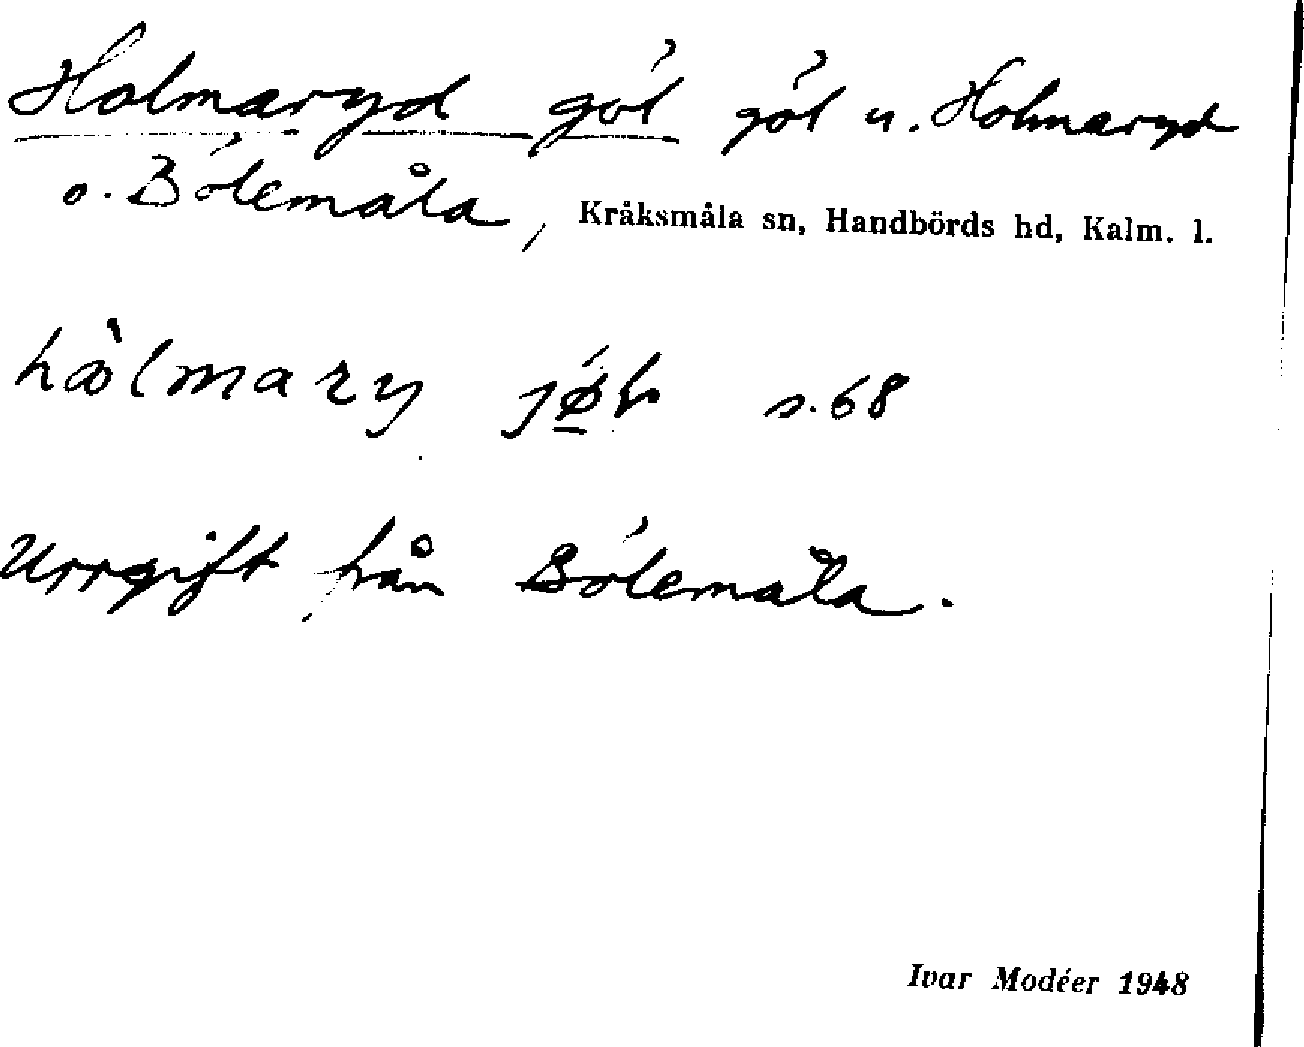 Holmaryd göl göl u. Holmaryd
o. Bölemåla, Kråksmåla sn, Handbörds hd, Kalm. l.
hålmary jøl s. 68
Uppgift från Bölemåla.
Ivar Modéer 1948